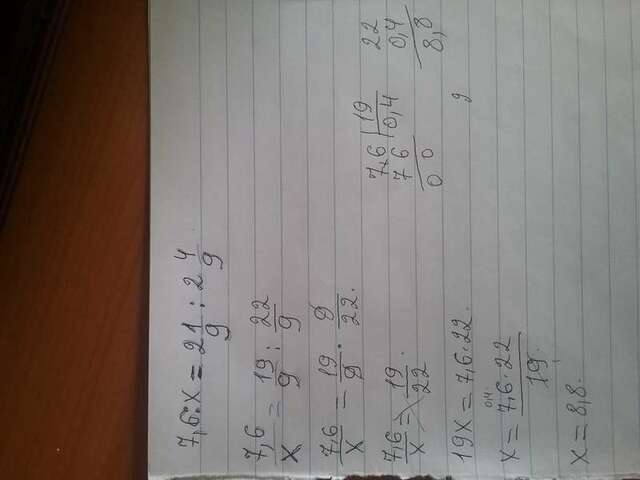 7,6:x = 2 1/9 : 2 4/9
7,6/x = 19/9 : 22/9
7,6/x = 19/9 · 9/22.
7,6/x = 19/22.
19x = 7,6·22.
0,4.
x = 7,6·22/19.
1
x = 8,8.
7,6 | 19
7 6 | 0,4
0 0
22
0,4
8,8